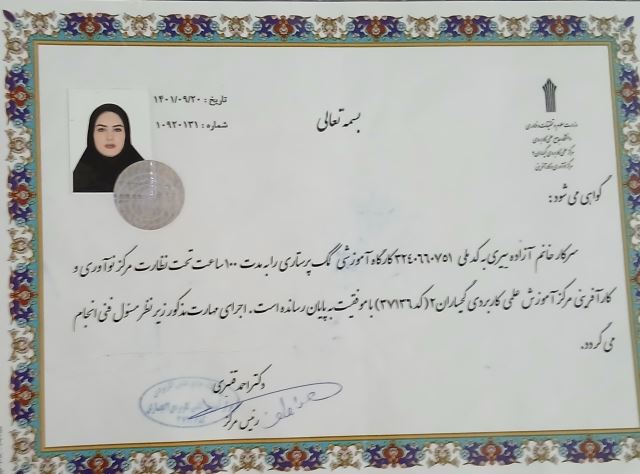 بسمه تعالی
تاریخ : ۱۴۰۱/۰۹/۲۰
شماره : ۱۰۹۲۰۱۳۱
وزارت علوم، تحقیقات و فناوری
دانشگاه جامع علمی کاربردی
گواهی می شود:
سرکار خانم آزاده پیری به کد ملی ۳۲۴۰۶۶۰۷۵۱ کارگاه آموزشی کمک پرستاری را به مدت ۱۰۰ ساعت تحت نظارت مرکز نوآوری و
کارآفرینی مرکز آموزش علمی کاربردی گیلان ۲ (کد ۳۷۱۳۶) با موفقیت به پایان رسانده است. اجرای مهارت مذکور زیر نظر مسئول فنی انجام
می گردد.
دکتر احمد قنبری
رئیس مرکز